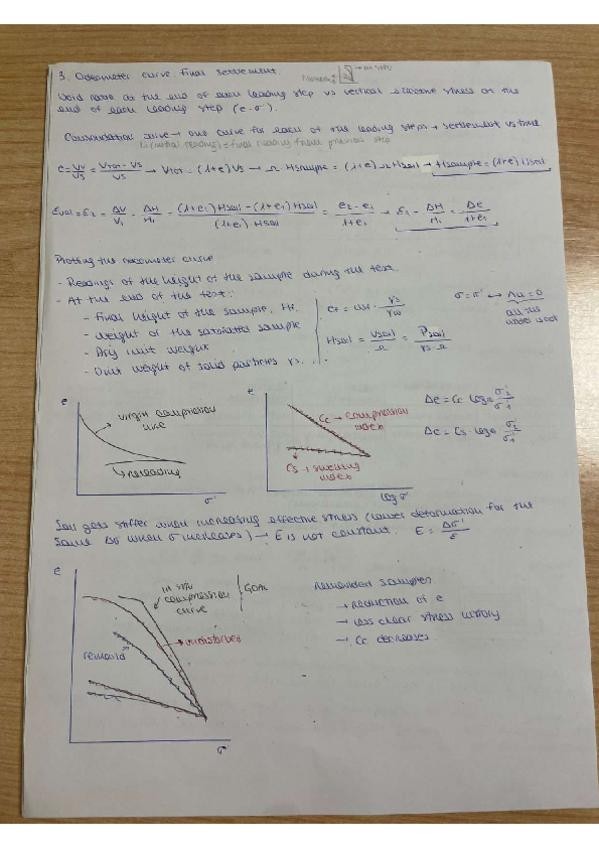 3. Oedometer curve. Final settlement.
in situ
Void ratio at the end of each loading step vs vertical effective stress at the
end of each loading step (e-σ').
Consolidation curve → one curve for each of the loading steps → settlement vs time
(initial reading) = final reading from previous step
e = Vv/Vs = (VTOT - Vs)/Vs → VTOT = (1+e)Vs → Ω · Hsample = (1+e) Ω Hsoil → Hsample = (1+e) Hsoil
Evol = ε1 = ΔV/V1 = ΔH/H1 = ((1+e2) Hsoil - (1+e1) Hsoil)/((1+e1) Hsoil) = (e2 - e1)/(1+e1) → ε1 = ΔH/H1 = Δe/(1+e1)
Plotting the oedometer curve
- Readings of the height of the sample during the test.
- At the end of the test:
- Final height of the sample, Hf.
- Weight of the saturated sample
- Dry unit weight
- Unit weight of solid particles γs.
ef = wf · γs/γw
Hsoil = Vsoil/Ω = Psoil/(γs · Ω)
σ = σ' ↔ Δu = 0
e
virgin compression
line
→ reloading
σ'
e
Cc → compression
index
Cs → swelling
index
log σ'
Δe = Cc · log σ'2/σ'1
Δe = Cs · log σ'2/σ'1
Soil gets stiffer when increasing effective stress (lower deformation for the
same Δσ when σ increases) → E is not constant. E = Δσ'/ε
e
in situ
compression
curve
GOAL
→ undisturbed
remould
σ'
Remoulded samples
→ reduction of e
→ less clear stress history
→ Cc decreases